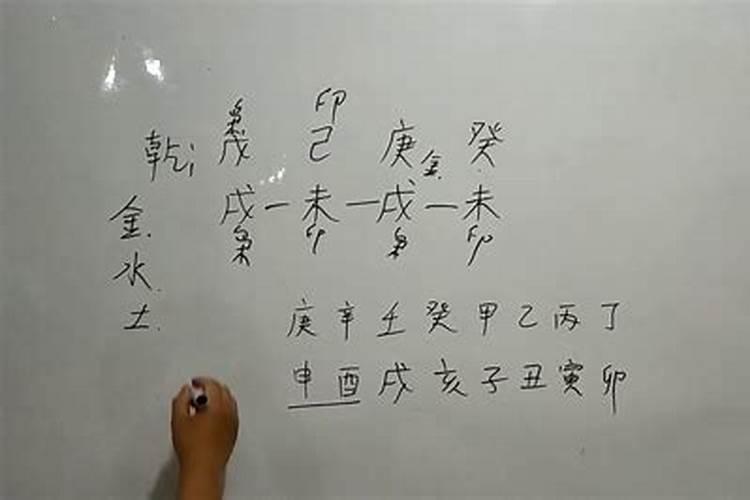 印
枭
乾; 戊 己 庚 金. 癸
戌 — 未 — 戌 — 未
枭 印 枭 印
金.
水.
土.
庚 辛 壬 癸 甲 乙 丙 丁
申 酉 戌 亥 子 丑 寅 卯